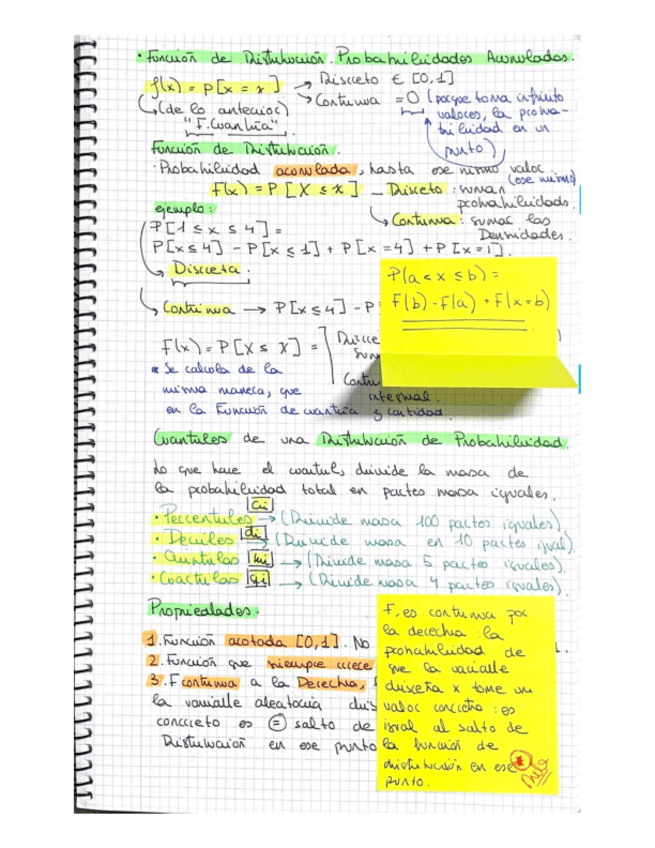 · Función de Distribución. Probabilidades Acumuladas.
f(x) = P[X = x] → Discreto ∈ [0,1]
→ Continua = 0 (porque toma infinito
(de lo anterior) valores, la proba-
"F. Cuantía". bilidad en un
punto).
Función de Distribución.
· Probabilidad acumulada, hasta ese mismo valor
(ese mismo)
F(x) = P[X ≤ x] - Discreto: suman
probabilidads.
ejemplo: → Continua: sumar las
Densidades.
P[1 ≤ x ≤ 4] =
P[x ≤ 4] - P[x ≤ 1] + P[x = 4] + P[x = 1].
→ Discreta.
→ Continua → P[x ≤ 4] - P
P(a < x ≤ b) =
F(b) - F(a) + F(x = b)
F(x) = P[X ≤ X] =
* Se calcula de la
misma manera, que
integral.
en la Función de cuantía y cantidad.
Cuantiles de una Distribución de Probabilidad.
Lo que hace el cuartil, divide la masa de
la probabilidad total en partes masa iguales.
· Percentiles ci → (Divide masa 100 partes iguales).
· Deciles di → (Divide masa en 10 partes igual).
· Quintiles ki → (Divide masa 5 partes iguales).
· Cuartiles qi → (Divide masa 4 partes iguales).
Propiedades.
1. Función acotada [0,1]. No
2. Función que siempre crece
3. F continua a la Derecha,
la variable aleatoria dis
concreto es = salto de
Distribución en ese punto
F, es continua por
la derecha: la
probabilidad de
que la variable
discreta x tome un
valor concreto: es
igual al salto de
la función de
distribución en ese
punto.